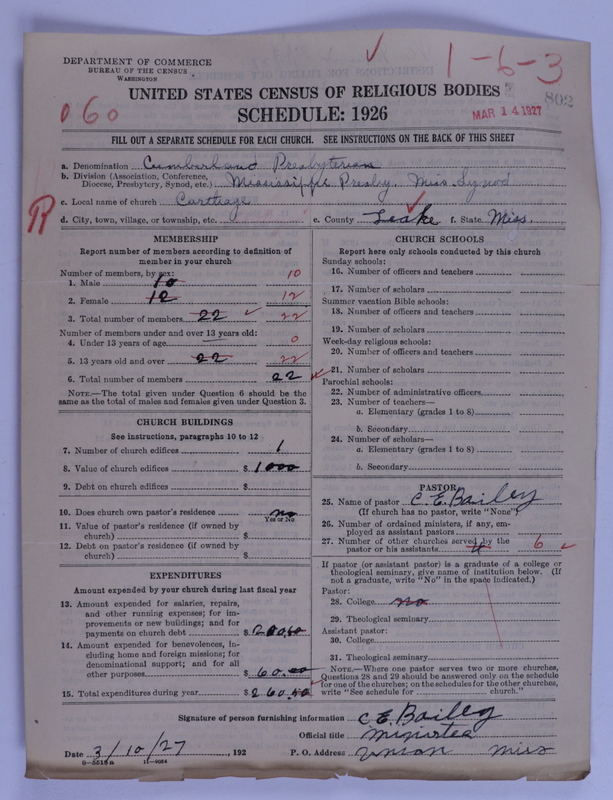 DEPARTMENT OF COMMERCE
BUREAU OF THE CENSUS
WASHINGTON
1-6-3
UNITED STATES CENSUS OF RELIGIOUS BODIES
802
060
SCHEDULE: 1926
MAR 14 1927
FILL OUT A SEPARATE SCHEDULE FOR EACH CHURCH. SEE INSTRUCTIONS ON THE BACK OF THIS SHEET
a. Denomination Cumberland Presbyterian
b. Division (Association, Conference, Diocese, Presbytery, Synod, etc.) Mississippi Presby. Miss Synod
c. Local name of church Carthage
R
d. City, town, village, or township, etc. e. County Leake f. State Miss.
MEMBERSHIP
Report number of members according to definition of
member in your church
Number of members, by sex:
1. Male 10 10
2. Female 12 12
3. Total number of members 22 22
Number of members under and over 13 years old:
4. Under 13 years of age 0
5. 13 years old and over 22 22
6. Total number of members 22
NOTE.—The total given under Question 6 should be
same as the total of males and females given under Question 3.
CHURCH BUILDINGS
See instructions, paragraphs 10 to 12
7. Number of church edifices 1
8. Value of church edifices $ 1000
9. Debt on church edifices $
10. Does church own pastor's residence no
Yes or No
11. Value of pastor's residence (if owned by
church) $
12. Debt on pastor's residence (if owned by
church) $
EXPENDITURES
Amount expended by your church during last fiscal year
13. Amount expended for salaries, repairs,
and other running expenses; for im-
provements or new buildings; and for
payments on church debt $ 200.00
14. Amount expended for benevolences, in-
cluding home and foreign missions; for
denominational support; and for all
other purposes $ 60.00
15. Total expenditures during year $ 260.00
CHURCH SCHOOLS
Report here only schools conducted by this church
Sunday schools:
16. Number of officers and teachers
17. Number of scholars
Summer vacation Bible schools:
18. Number of officers and teachers
19. Number of scholars
Week-day religious schools:
20. Number of officers and teachers
21. Number of scholars
Parochial schools:
22. Number of administrative officers
23. Number of teachers—
a. Elementary (grades 1 to 8)
b. Secondary
24. Number of scholars—
a. Elementary (grades 1 to 8)
b. Secondary
PASTOR
25. Name of pastor C. E. Bailey
(If church has no pastor, write "None")
26. Number of ordained ministers, if any, em-
ployed as assistant pastors
27. Number of other churches served by the
pastor or his assistants 4 6
If pastor (or assistant pastor) is a graduate of a college or
theological seminary, give name of institution below. (If
not a graduate, write "No" in the space indicated.)
Pastor:
28. College no
29. Theological seminary
Assistant pastor:
30. College
31. Theological seminary
NOTE.—Where one pastor serves two or more churches,
Questions 28 and 29 should be answered only on the schedule
for one of the churches; on the schedules for the other churches,
write "See schedule for church."
Signature of person furnishing information C. E. Bailey
Official title Minister
Date 3/10/27, 192 P. O. Address Union Miss